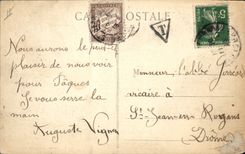 CARTE POSTALE
T
5
Nous aurons le
plaisir de nous voir
pour Pâques
Je vous serre la
main
Auguste
Monsieur l'abbé
vicaire à
St-Jean-en-Royans
Drôme